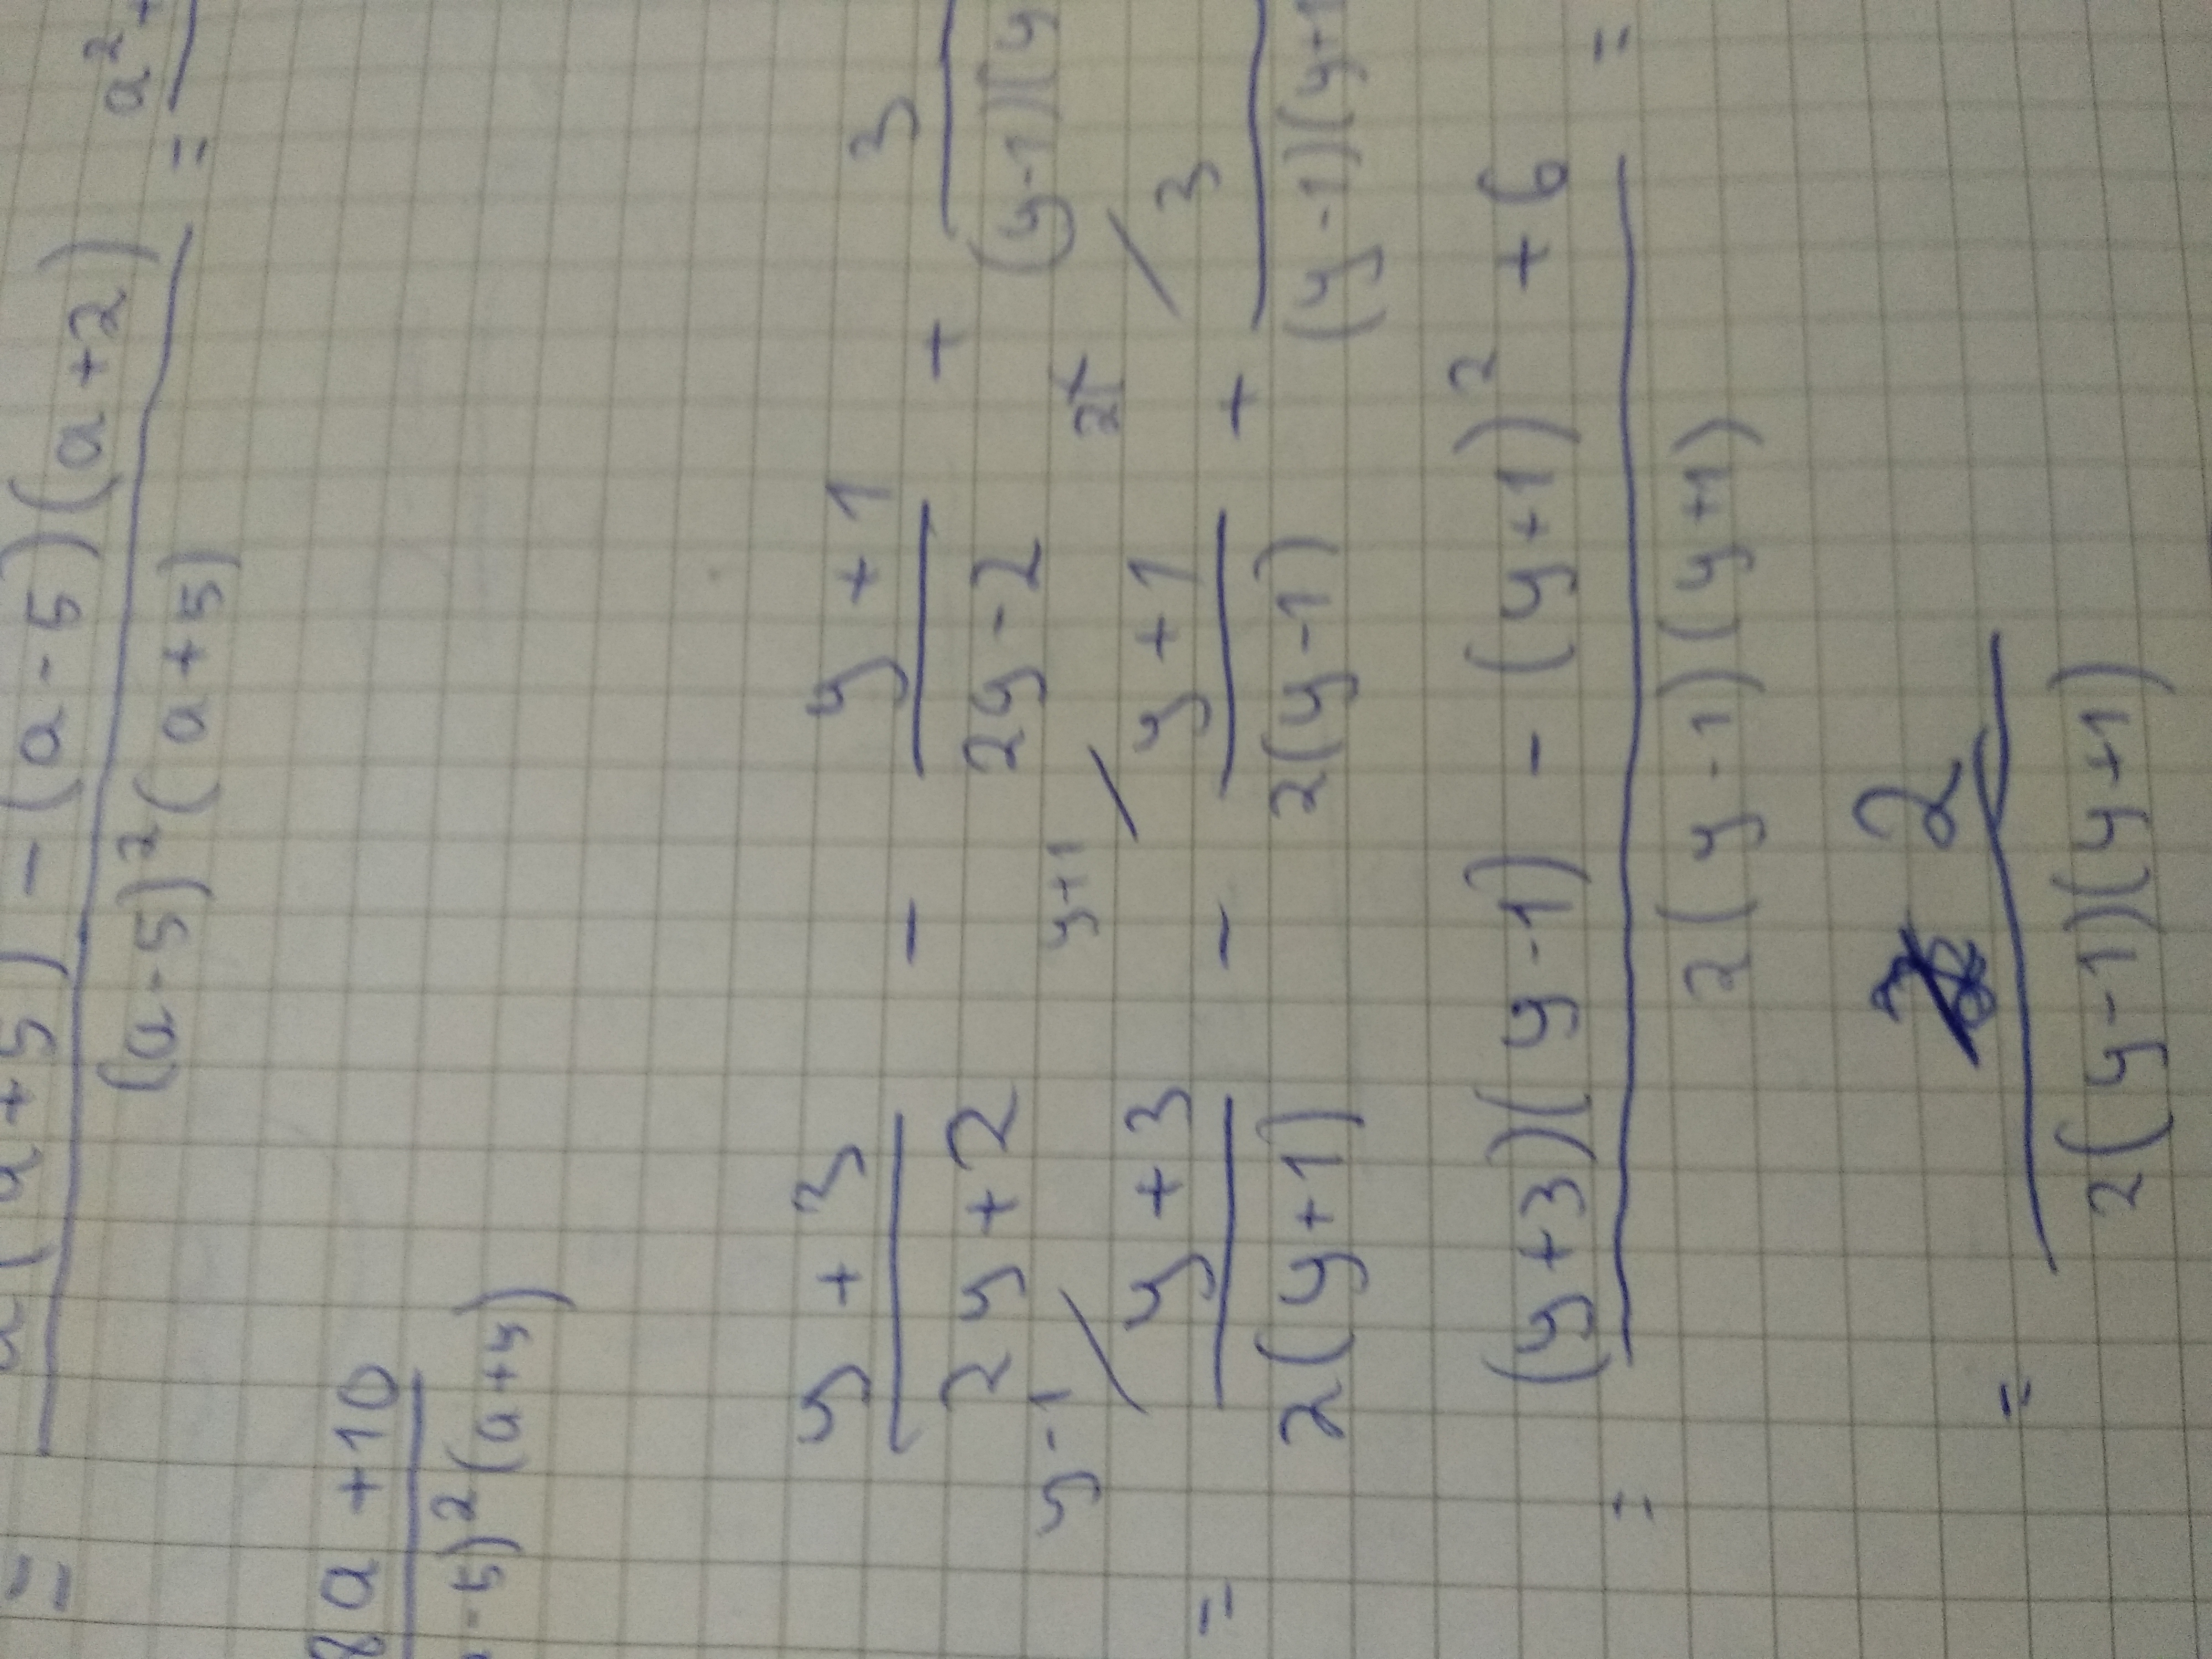 = a(a+5) - (a-5)(a+2) = a²+
(a-5)²(a+5)
8a+10
-5)²(a+5)
y+3 - y+1 + 3
2y+2 2y-2 (y-1)(y
y-1 y+1 2
= y+3 - y+1 + 3
2(y+1) 2(y-1) (y-1)(y+1
= (y+3)(y-1) - (y+1)² + 6 =
2(y-1)(y+1)
= 2
2(y-1)(y+1)